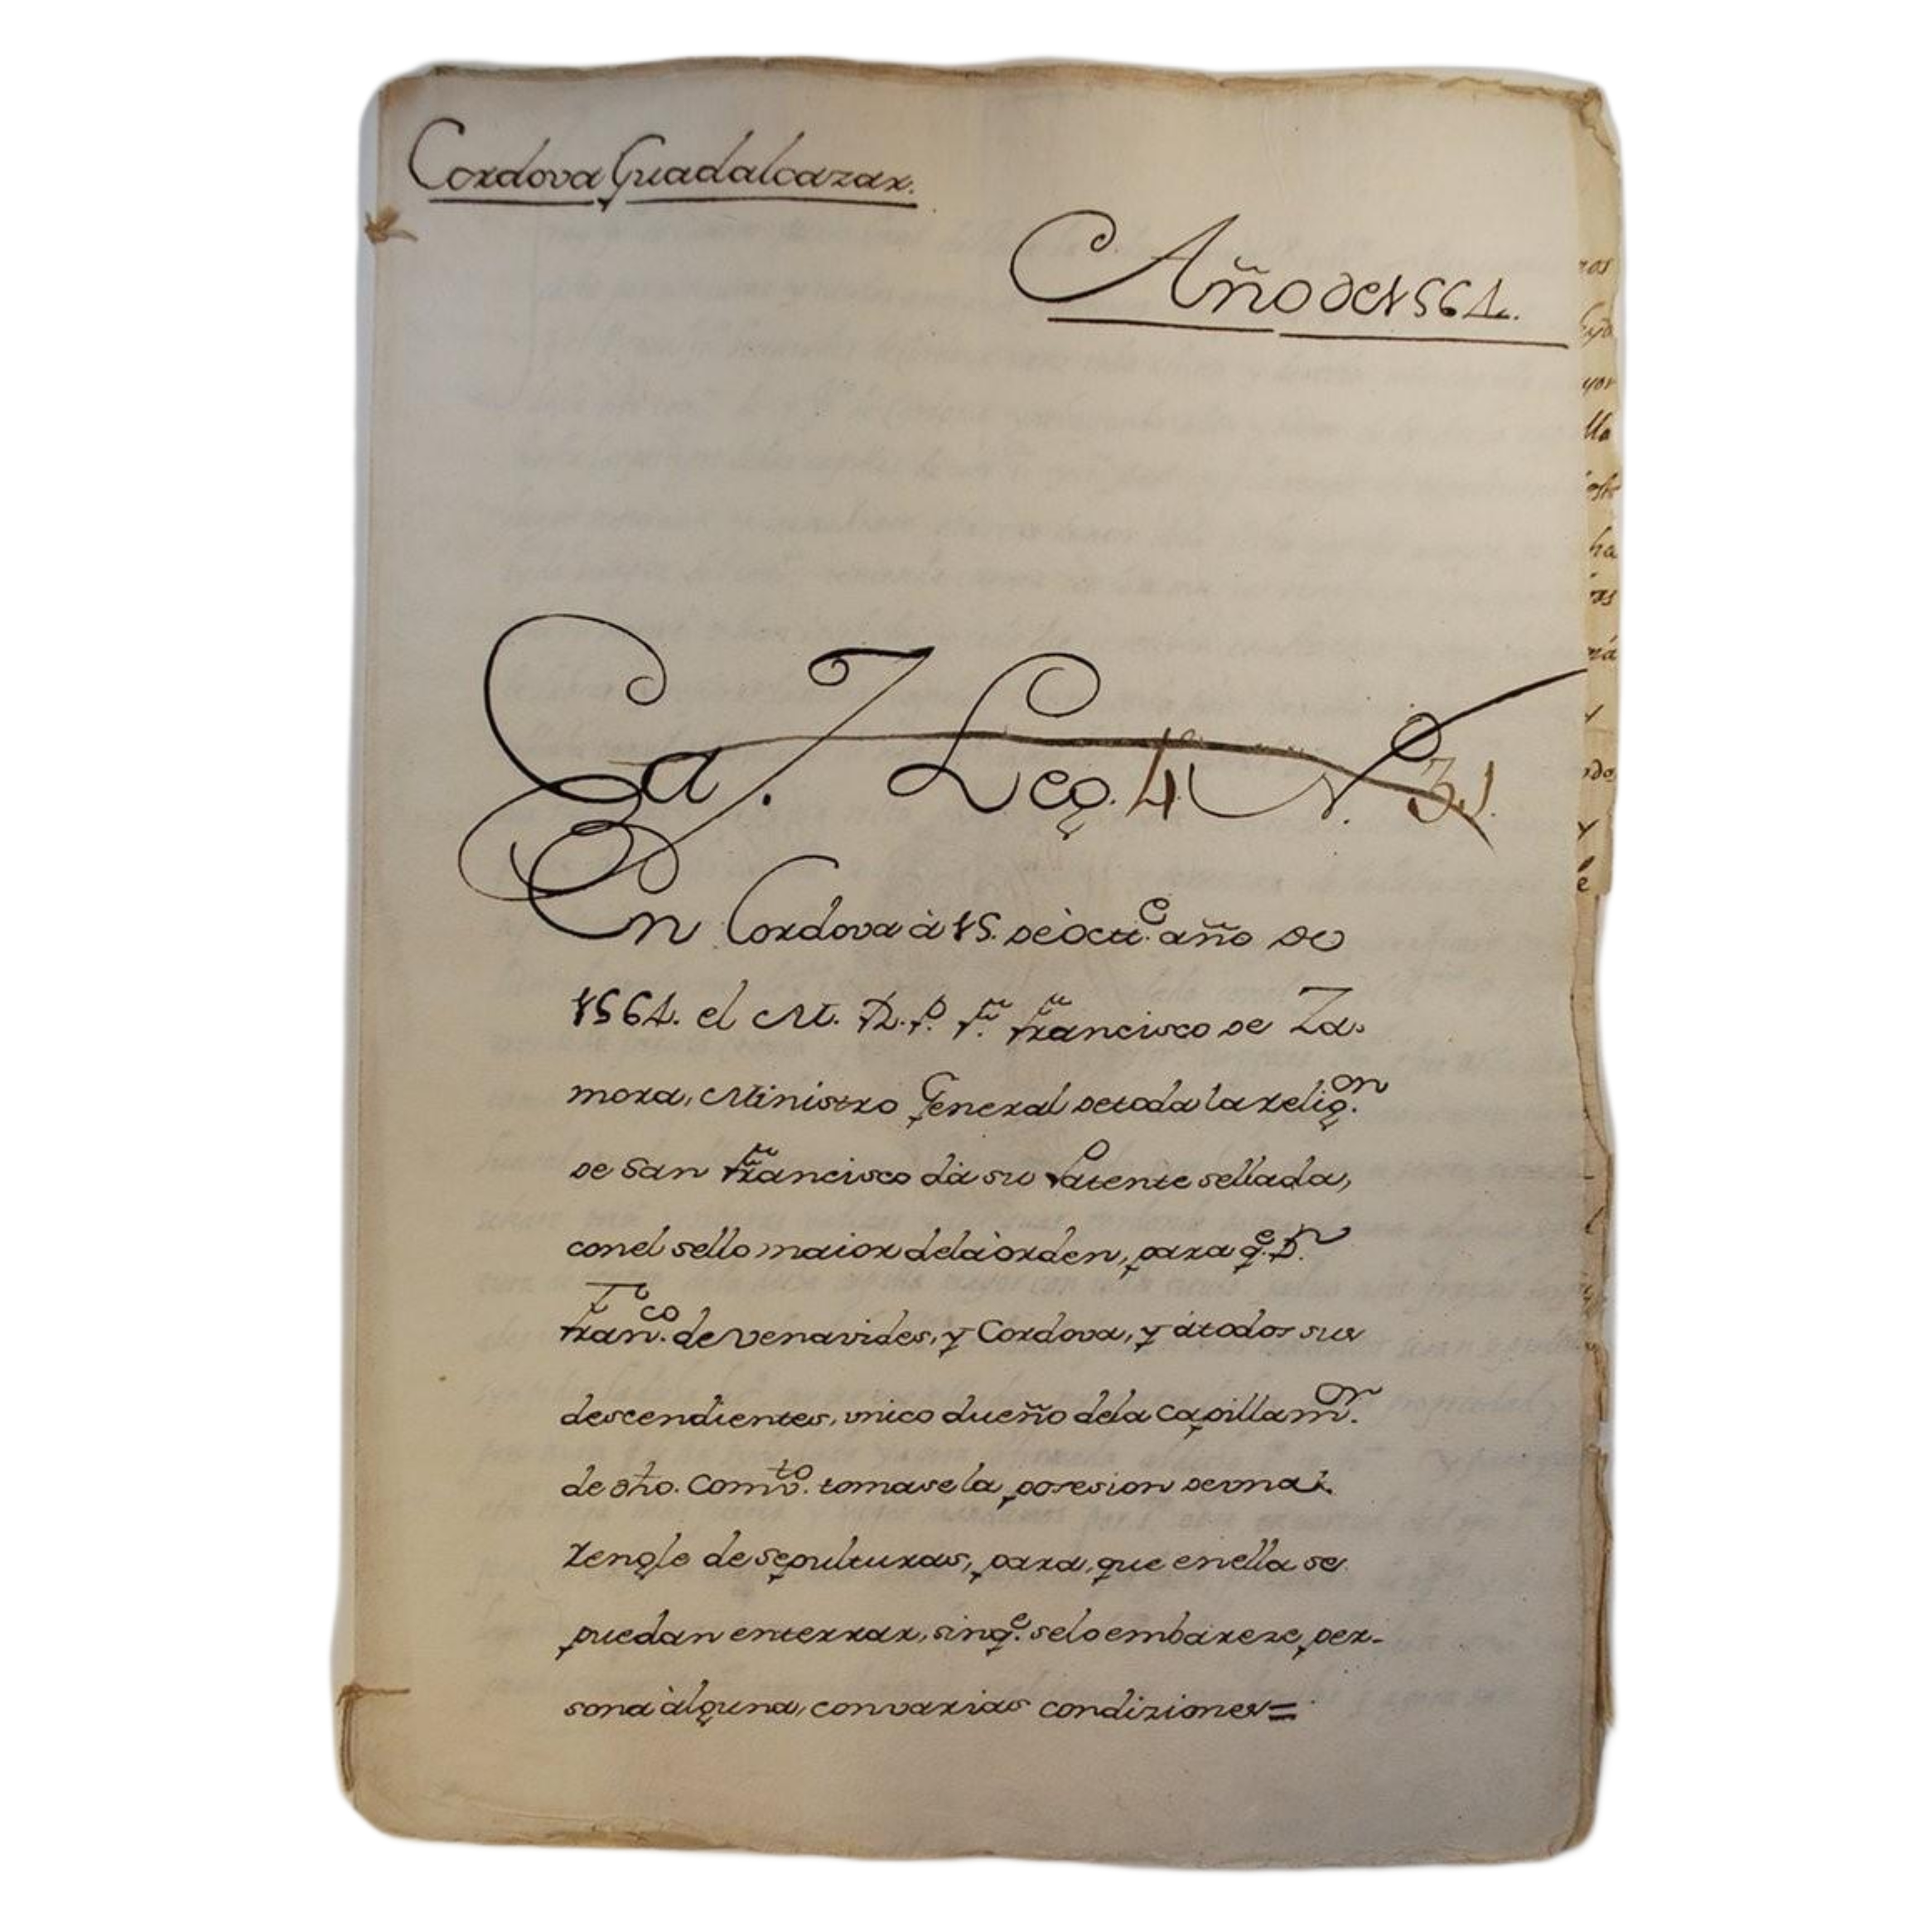 Cordova Guadalcazar.
Año de 1564.
Ca. 7. Leg. 4 N. 31.
En Cordova à 15. de Octu.e año de
1564. el M. R. P. Fr. Francisco de Za-
mora, Ministro General de toda la relig.on
de San Francisco dà su Patente sellada,
con el sello maior de la òrden, para q.e D.n
Fran.co de Venavides, y Cordova, y à todos sus
descendientes, vnico dueño de la Capilla m.or
de dho. Comv.to tomase la posesion de vna
renglo de sepulturas, para, que en ella se
puedan enterrar, sin q.e se lo embareze per-
sona àlguna, con varias condiziones=